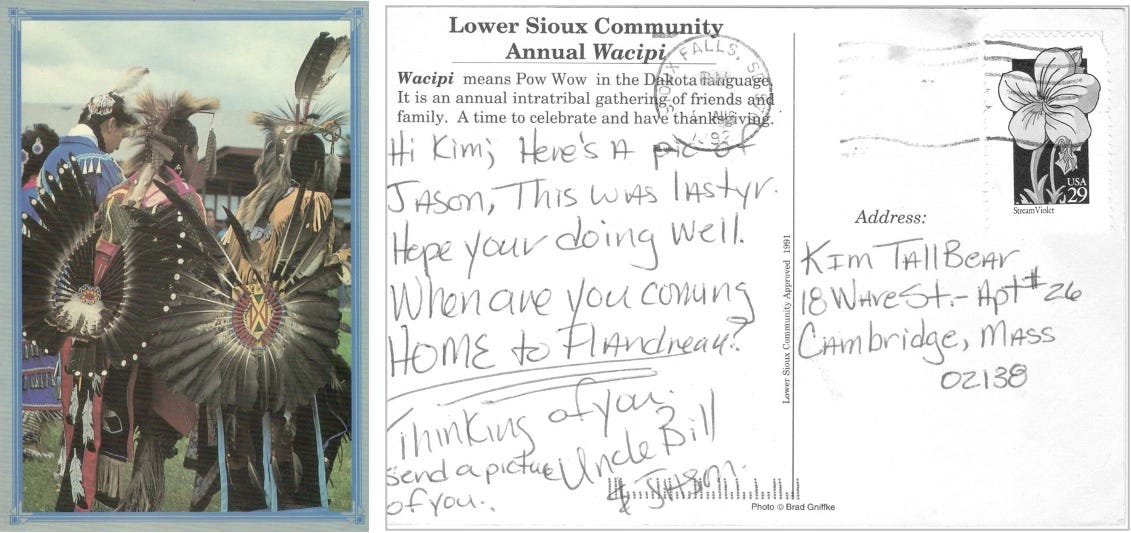 Lower Sioux Community
Annual Wacipi
Wacipi means Pow Wow in the Dakota language.
It is an annual intratribal gathering of friends and
family. A time to celebrate and have thanksgiving.
Hi Kim; Here's A pic of
JASON, This was last yr.
Hope your doing well.
When are you coming
HOME to Flandreau?
Thinking of you.
Uncle Bill
& JASON.
send a picture
of you.
Photo © Brad Gniffke
Lower Sioux Community Approved 1991
SIOUX FALLS, SD
PM
USA
29
Stream Violet
Address:
Kim TallBear
18 Ware St. - Apt # 26
Cambridge, Mass
02138